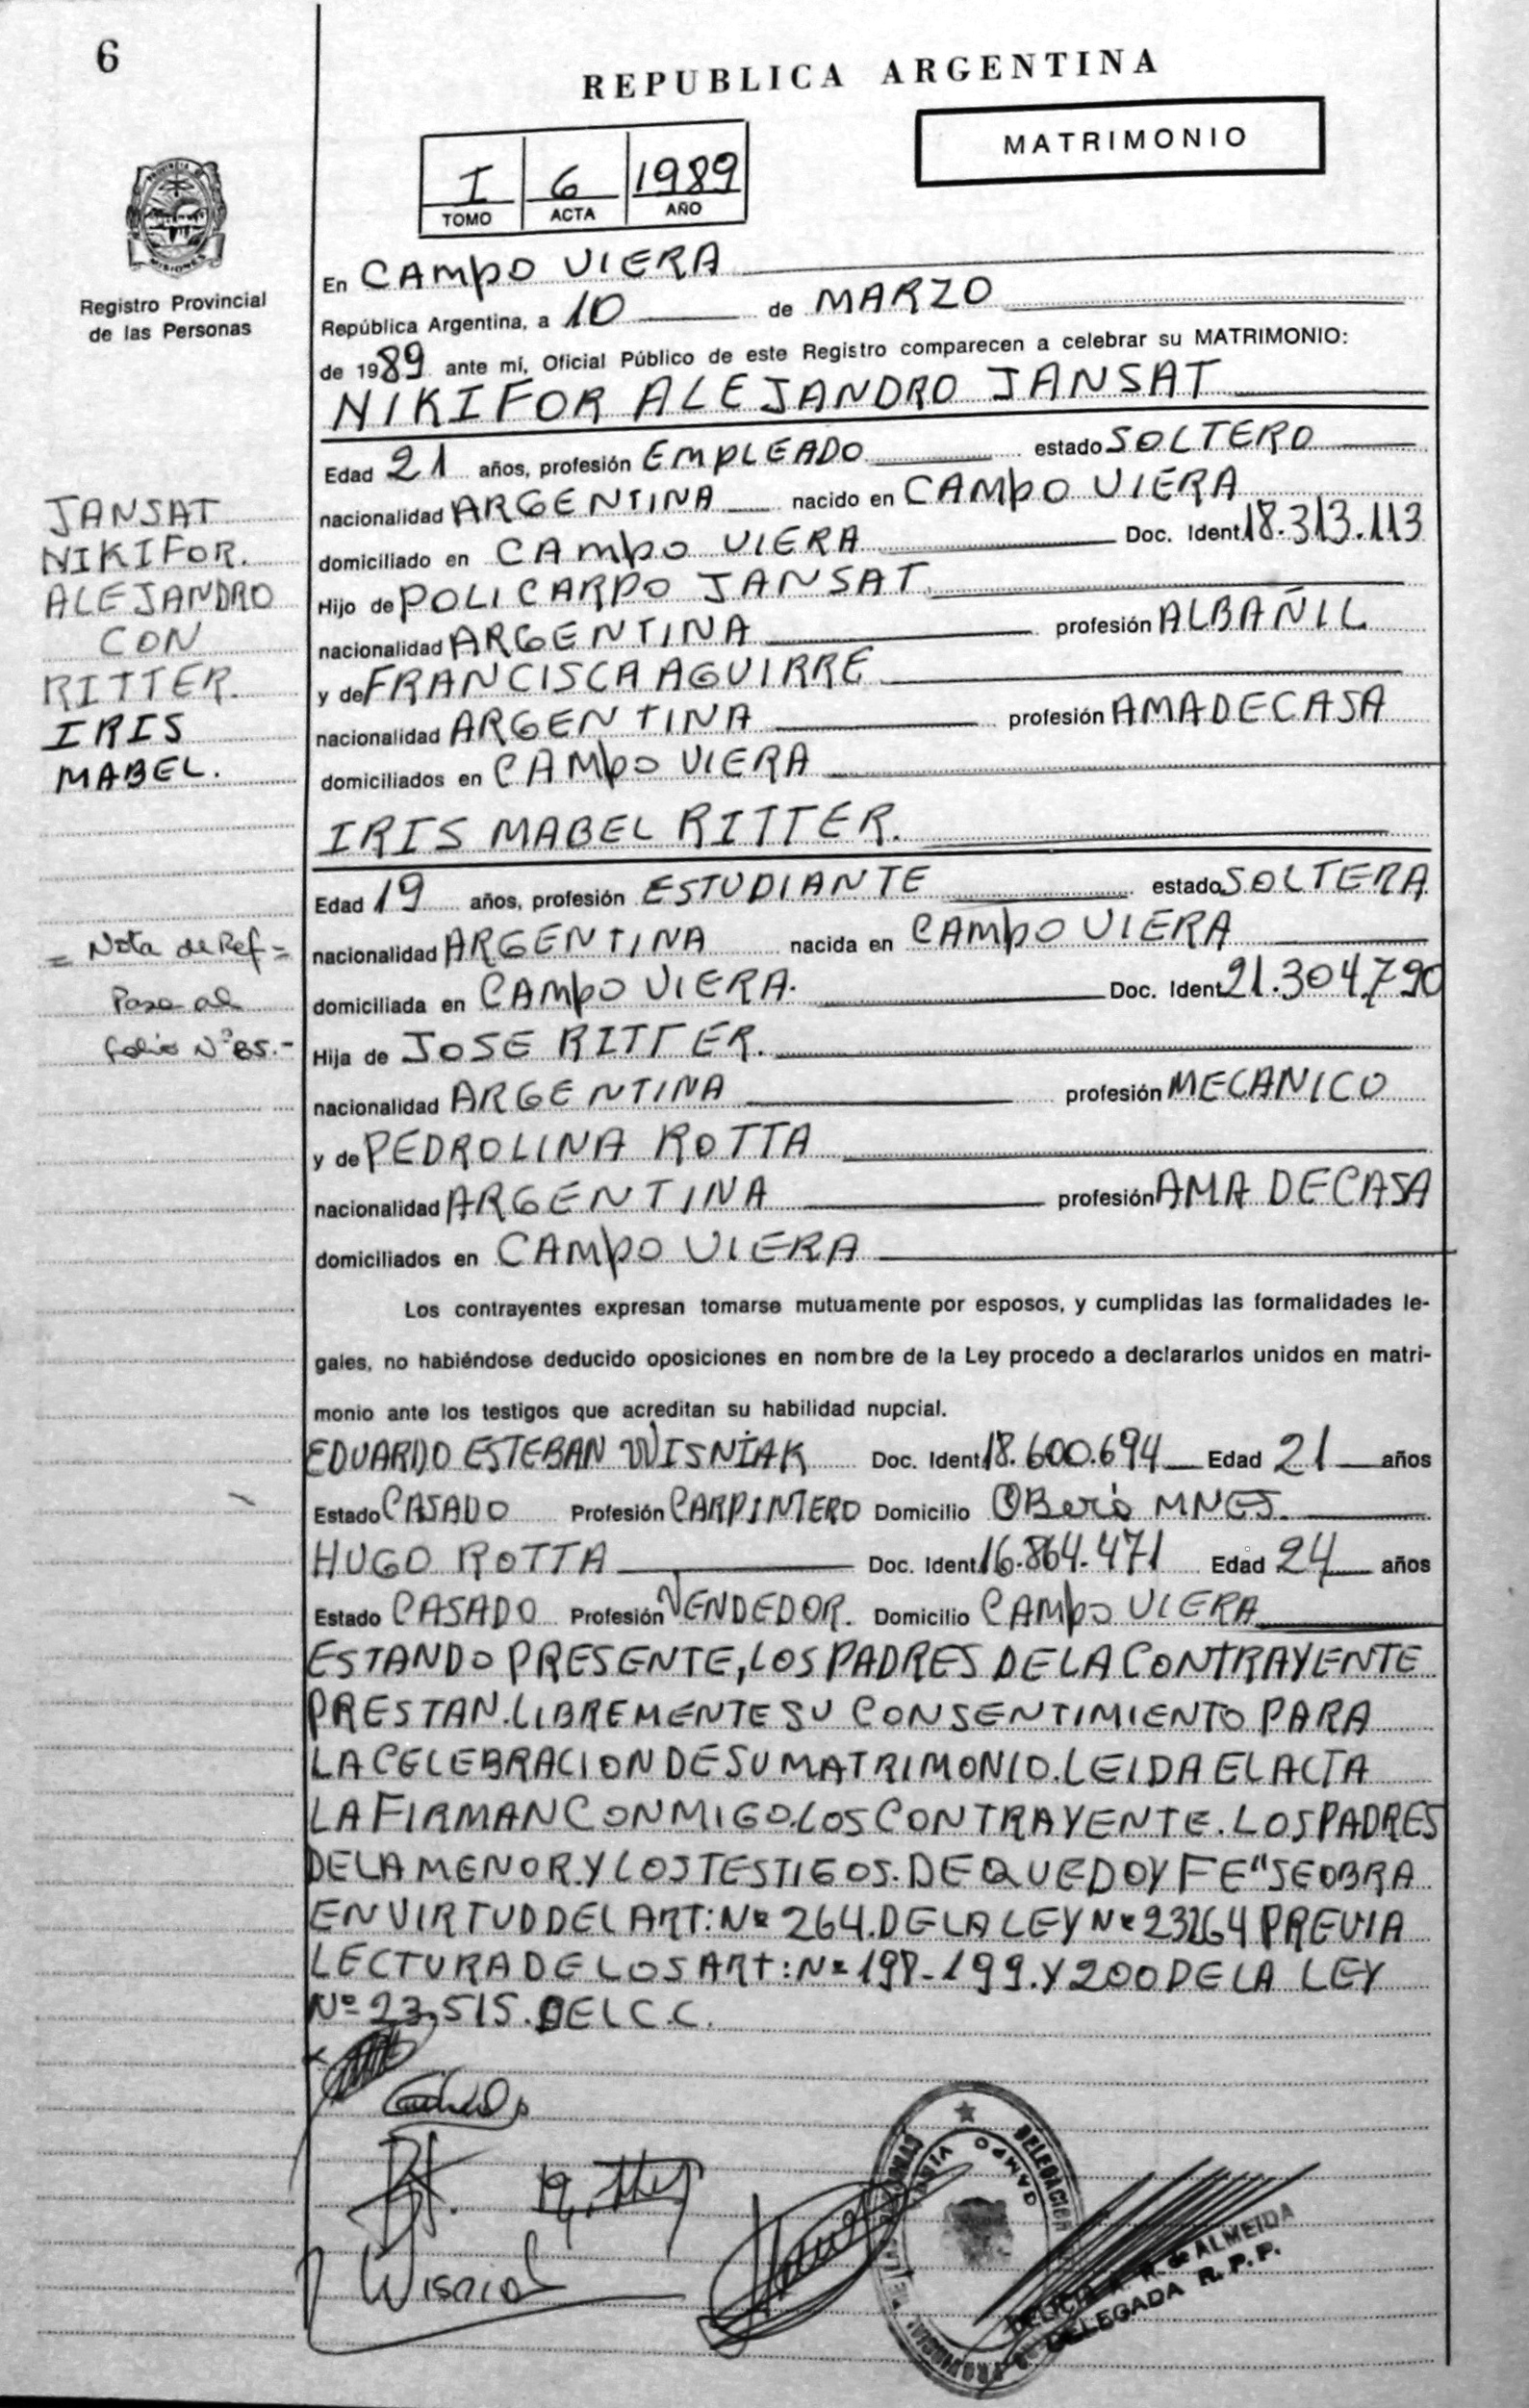 6
REPUBLICA ARGENTINA
MATRIMONIO
I 6 1989
TOMO ACTA AÑO
PROVINCIA DE
MISIONES
Registro Provincial
de las Personas
En CAMPO VIERA
República Argentina, a 10 de MARZO
de 1989 ante mí, Oficial Público de este Registro comparecen a celebrar su MATRIMONIO:
NIKIFOR ALEJANDRO JANSAT
Edad 21 años, profesión EMPLEADO estado SOLTERO
nacionalidad ARGENTINA nacido en CAMPO VIERA
domiciliado en CAMPO VIERA Doc. Ident. 18.313.113
Hijo de POLICARPO JANSAT.
nacionalidad ARGENTINA profesión ALBAÑIL
y de FRANCISCA AGUIRRE
nacionalidad ARGENTINA profesión AMADECASA
domiciliados en CAMPO VIERA
JANSAT
NIKIFOR.
ALEJANDRO
CON
RITTER.
IRIS
MABEL.
IRIS MABEL RITTER.
Edad 19 años, profesión ESTUDIANTE estado SOLTERA
nacionalidad ARGENTINA nacida en CAMPO VIERA
domiciliada en CAMPO VIERA. Doc. Ident. 21.304.790
Hija de JOSE RITTER.
nacionalidad ARGENTINA profesión MECANICO
y de PEDROLINA ROTTA
nacionalidad ARGENTINA profesión AMA DECASA
domiciliados en CAMPO VIERA
= Nota de Ref =
Pasa al
folio Nº 85.-
Los contrayentes expresan tomarse mutuamente por esposos, y cumplidas las formalidades le-
gales, no habiéndose deducido oposiciones en nombre de la Ley procedo a declararlos unidos en matri-
monio ante los testigos que acreditan su habilidad nupcial.
EDUARDO ESTEBAN WISNIAK Doc. Ident. 18.600.694 Edad 21 años
Estado CASADO Profesión CARPINTERO Domicilio OBerá MNES.
HUGO ROTTA Doc. Ident. 16.864.471 Edad 24 años
Estado CASADO Profesión VENDEDOR. Domicilio CAMPO VIERA
ESTANDO PRESENTE, LOS PADRES DE LA CONTRAYENTE
PRESTAN. LIBREMENTE SU CONSENTIMIENTO PARA
LA CELEBRACION DE SU MATRIMONIO. LEIDA EL ACTA
LA FIRMAN CONMIGO. LOS CONTRAYENTE. LOS PADRES
DE LA MENOR. Y LOS TESTIGOS. DE QUE DOY FE "SE OBRA
EN VIRTUD DEL ART: Nº 264. DE LA LEY Nº 23264 PREVIA
LECTURA DE LOS ART: Nº 198-199. Y 200 DE LA LEY
Nº 23.515. DEL C.C.
Wisniak
DELEGACION
CAMPO VIERA
de ALMEIDA
DELEGADA R. P. P.